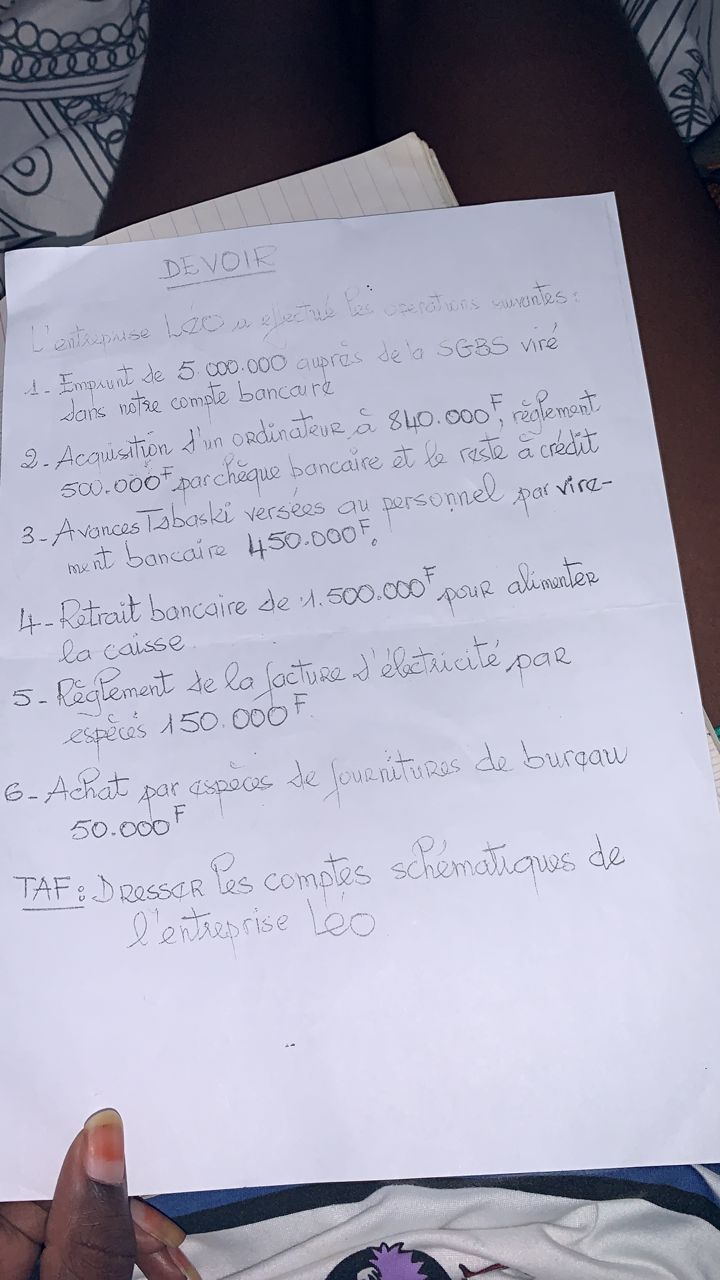 DEVOIR
L'entreprise LÉO a efectué les operations suivantes :
1- Emprunt de 5.000.000 auprès de la SGBS viré
dans notre compte bancaire
2- Acquisition d'un ordinateur à 840.000F, règlement
500.000F par chèque bancaire et le reste à crédit
3- Avances Tabaski versées au personnel par vire-
ment bancaire 450.000F.
4- Retrait bancaire de 1.500.000F pour alimenter
la caisse
5- Règlement de la facture d'électricité par
espèces 150.000F
6- Achat par espèces de fournitures de bureau
50.000F
TAF : Dresser les comptes schématiques de
l'entreprise Léo